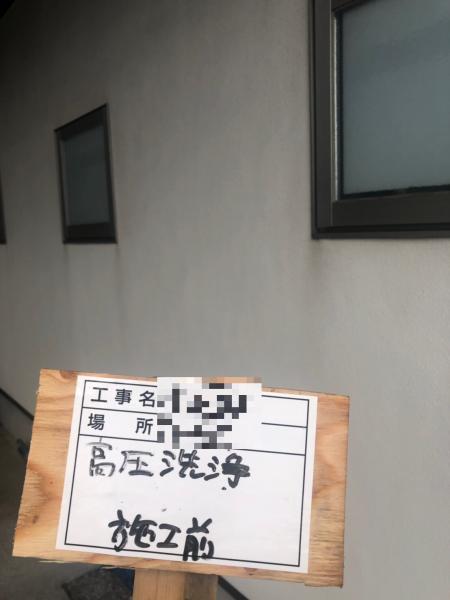 工事名
場所
高圧洗浄
施工前